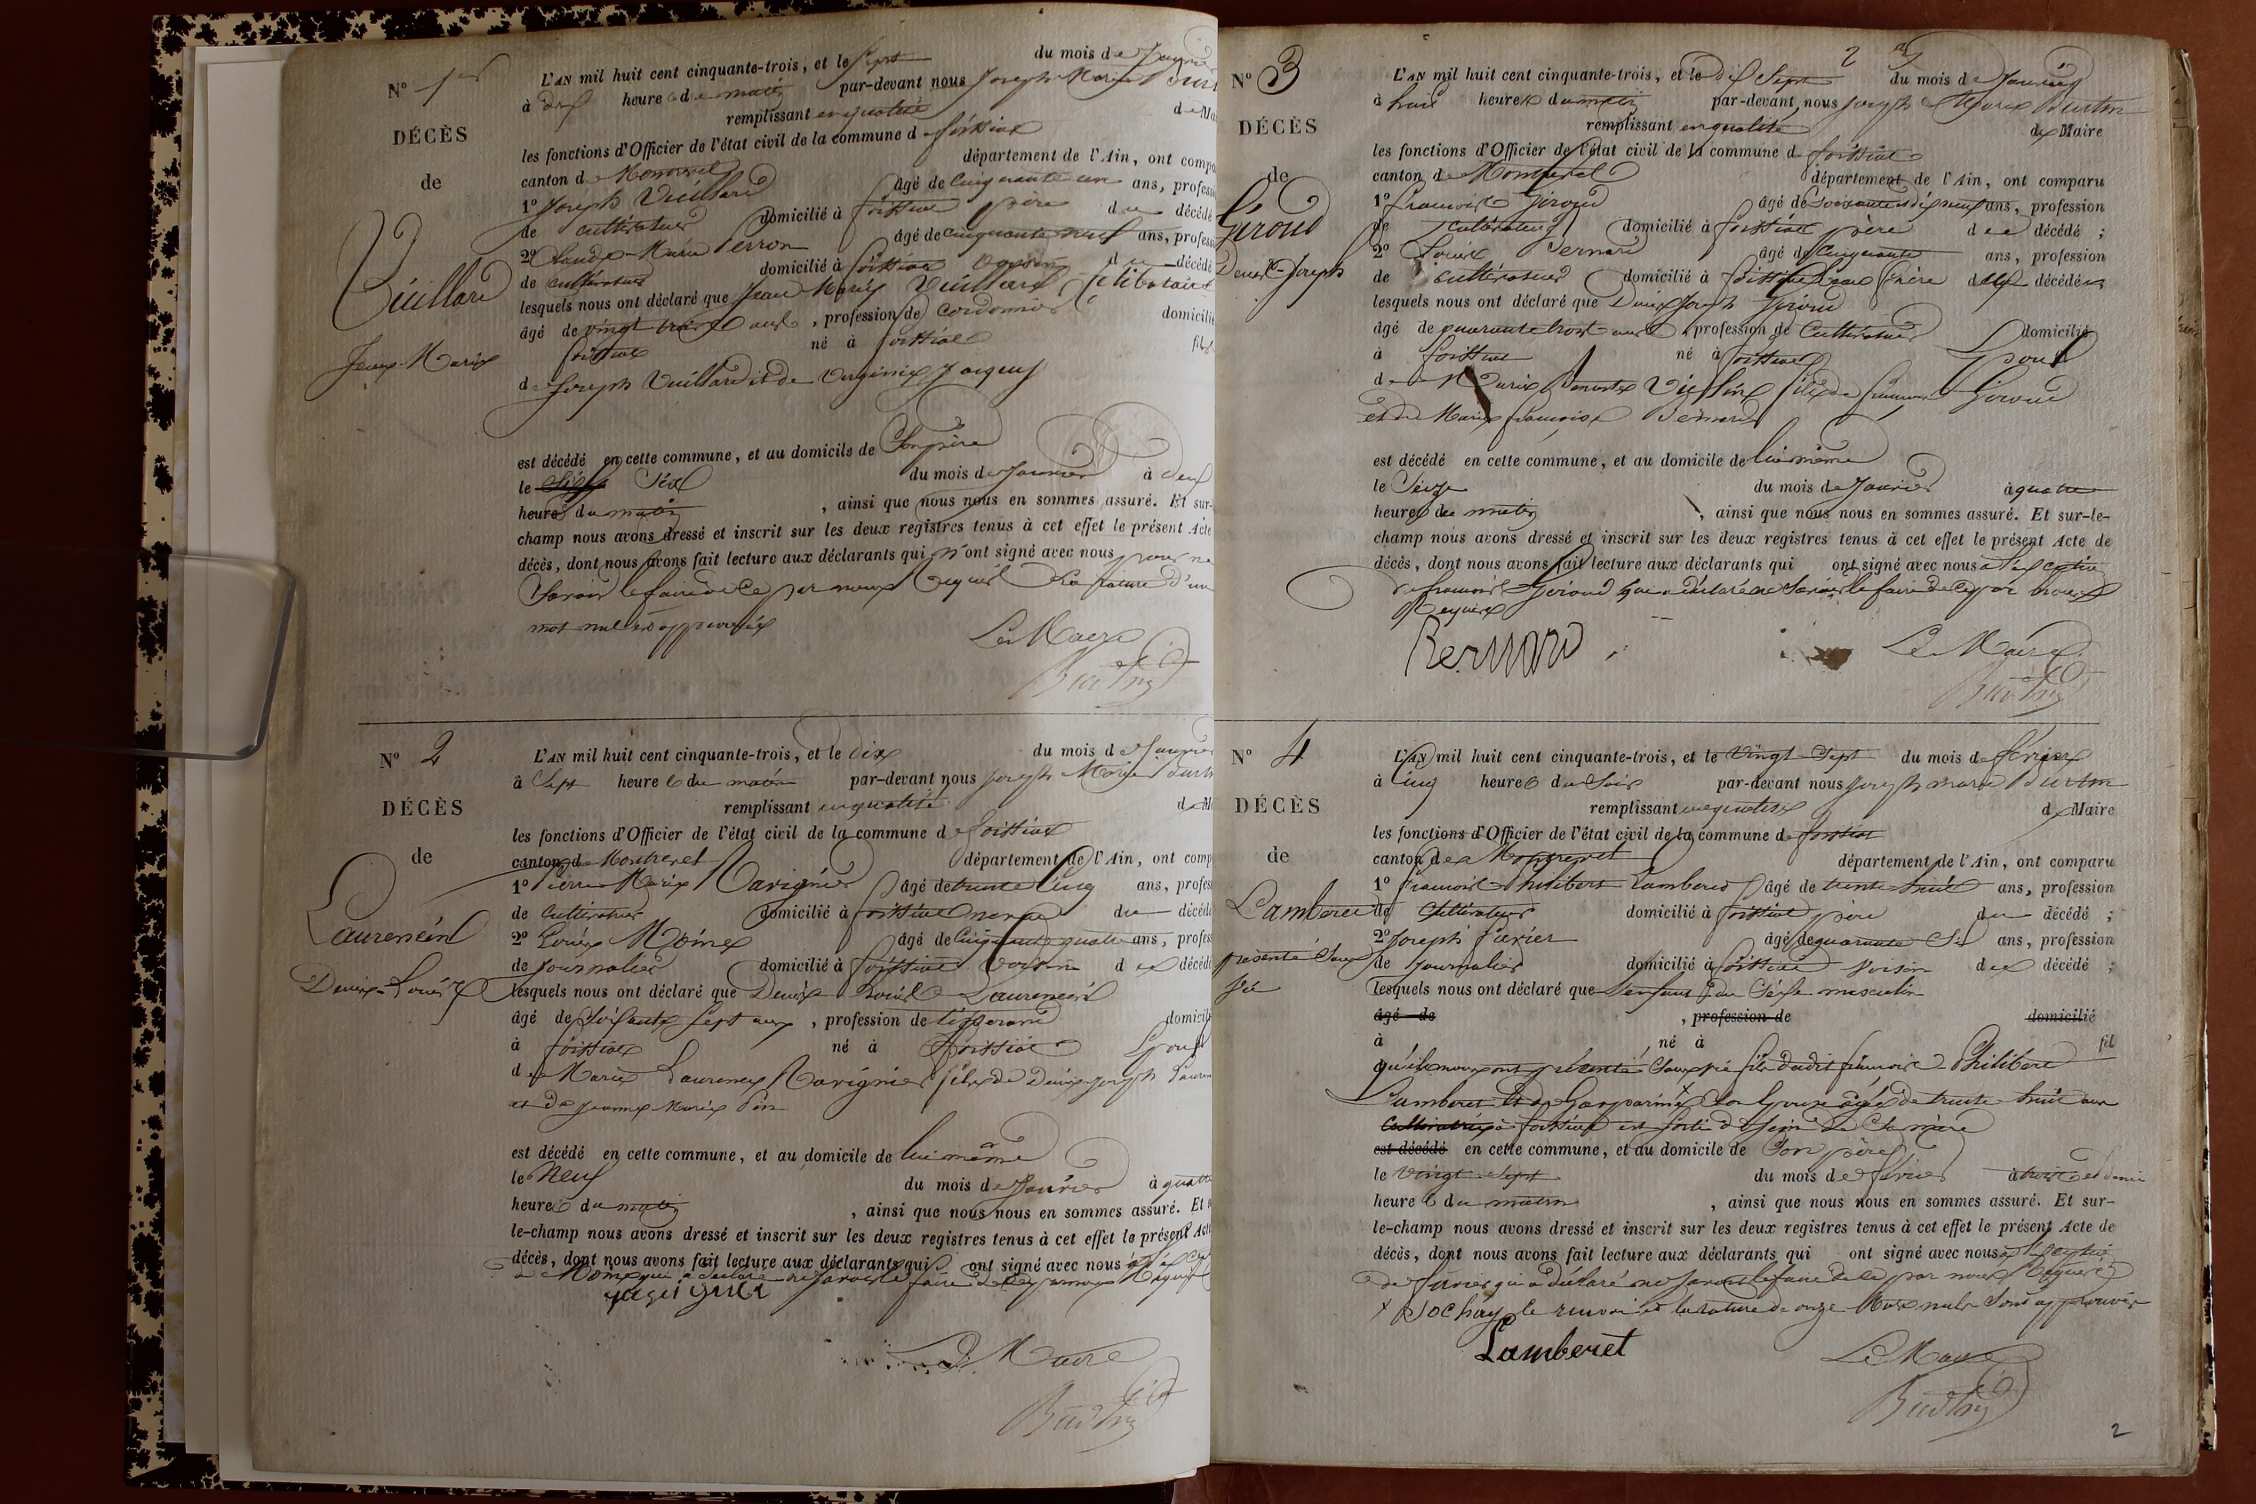 N° 1er
DÉCÈS
de
Vuillard
Jean-Marie
L'AN mil huit cent cinquante-trois, et le Sept du mois de Janvier
à dix heures du matin par-devant nous Joseph Marie
remplissant en qualité de
les fonctions d'Officier de l'état civil de la commune de foissiat
canton de Montrevel département de l'Ain, ont
1° Joseph Vuillard âgé de Cinquante un ans,
de cultivateur domicilié à foissiat père du décédé
2° Claude-Marie Perron âgé de cinquante neuf ans,
de cultivateur domicilié à foissiat voisin du décédé
lesquels nous ont déclaré que Jean Marie Vuillard, Célibataire
âgé de vingt trois ans, profession de Cordonnier domicilié
foissiat né à foissiat fils
de Joseph Vuillard et de Virginie Joigny
est décédé en cette commune, et au domicile de Son père
le Six du mois de Janvier à deux
heures du matin, ainsi que nous nous en sommes assuré. Et sur-
champ nous avons dressé et inscrit sur les deux registres tenus à cet effet le présent Acte
décès, dont nous avons fait lecture aux déclarants qui n'ont signé avec nous pour ne
Savoir le faire de ce par nous requis La rature d'un
mot nul est approuvée
Le Maire
N° 2
DÉCÈS
de
Laurencin
Denis-Louis
L'AN mil huit cent cinquante-trois, et le dix du mois de Janvier
à Sept heures du matin par-devant nous Joseph Marie
remplissant en qualité de
les fonctions d'Officier de l'état civil de la commune de foissiat
canton de Montrevel département de l'Ain, ont
1° Pierre Marie Navignier âgé de trente Cinq ans,
de cultivateur domicilié à foissiat neveu du décédé
2° Louis Moine âgé de Cinquante quatre ans,
de Journalier domicilié à foissiat voisin du décédé
lesquels nous ont déclaré que Denis Louis Laurencin
âgé de Soixante Sept ans, profession de tisserand
à foissiat né à foissiat Epoux
de Marie Laurence Navignier fils de Denis Joseph
et de Jeanne Marie
est décédé en cette commune, et au domicile de lui même
le Neuf du mois de Janvier à quatre
heures du matin, ainsi que nous nous en sommes assuré. Et
le-champ nous avons dressé et inscrit sur les deux registres tenus à cet effet le présent
décès, dont nous avons fait lecture aux déclarants qui ont signé avec nous
Moine qui a déclaré ne savoir le faire de ce par nous Requis
Le Maire
2
N° 3
DÉCÈS
de
Giroud
Denis-Joseph
L'AN mil huit cent cinquante-trois, et le dix Sept du mois de Janvier
à huit heures du matin par-devant nous Joseph Marie
remplissant en qualité de Maire
les fonctions d'Officier de l'état civil de la commune de foissiat
canton de Montrevel département de l'Ain, ont comparu
1° françois Giroud âgé de Soixante dix neuf ans, profession
de cultivateur domicilié à foissiat père du décédé ;
2° Louis Bernard âgé de Cinquante ans, profession
de cultivateur domicilié à foissiat beau frère du décédé
lesquels nous ont déclaré que Denis Joseph Giroud
âgé de quarante trois ans, profession de Cultivateur domicilié
à foissiat né à foissiat Epoux
de Marie fils de françois Giroud
et de Marie françoise Bernard
est décédé en cette commune, et au domicile de lui même
le Seize du mois de Janvier à quatre
heures du matin, ainsi que nous nous en sommes assuré. Et sur-le-
champ nous avons dressé et inscrit sur les deux registres tenus à cet effet le présent Acte de
décès, dont nous avons fait lecture aux déclarants qui ont signé avec nous à l'exception
de françois Giroud qui a déclaré ne Savoir le faire de ce par nous
Requis
Bernard
Le Maire
N° 4
DÉCÈS
de
Lamberet
présenté Sans
vie
L'AN mil huit cent cinquante-trois, et le Vingt-Sept du mois de février
à Cinq heures du Soir par-devant nous Joseph marie
remplissant en qualité de Maire
les fonctions d'Officier de l'état civil de la commune de foissiat
canton de Montrevel département de l'Ain, ont comparu
1° françois Philibert Lamberet âgé de trente huit ans, profession
de Cultivateur domicilié à foissiat père du décédé ;
2° Joseph favier âgé de quarante Six ans, profession
de Journalier domicilié à foissiat voisin du décédé ;
lesquels nous ont déclaré que l'enfant du Sexe masculin
âgé de , profession de domicilié
à né à fil
qu'ils nous ont présenté Sans vie fils dudit françois Philibert
Lamberet et de Gasparine x Son Epouse âgée de trente huit ans
Cultivatrice à foissiat est sorti du Sein de Sa mère
est décédé en cette commune, et au domicile de Son père
le vingt-Sept du mois de février à trois et demie
heures du matin, ainsi que nous nous en sommes assuré. Et sur-
le-champ nous avons dressé et inscrit sur les deux registres tenus à cet effet le présent Acte de
décès, dont nous avons fait lecture aux déclarants qui ont signé avec nous à l'exception
de favier qui a déclaré ne Savoir le faire de ce par nous Requis
x Bochay le renvoi et la rature de onze Mots nuls Sont approuvés
Lamberet
Le Maire
2